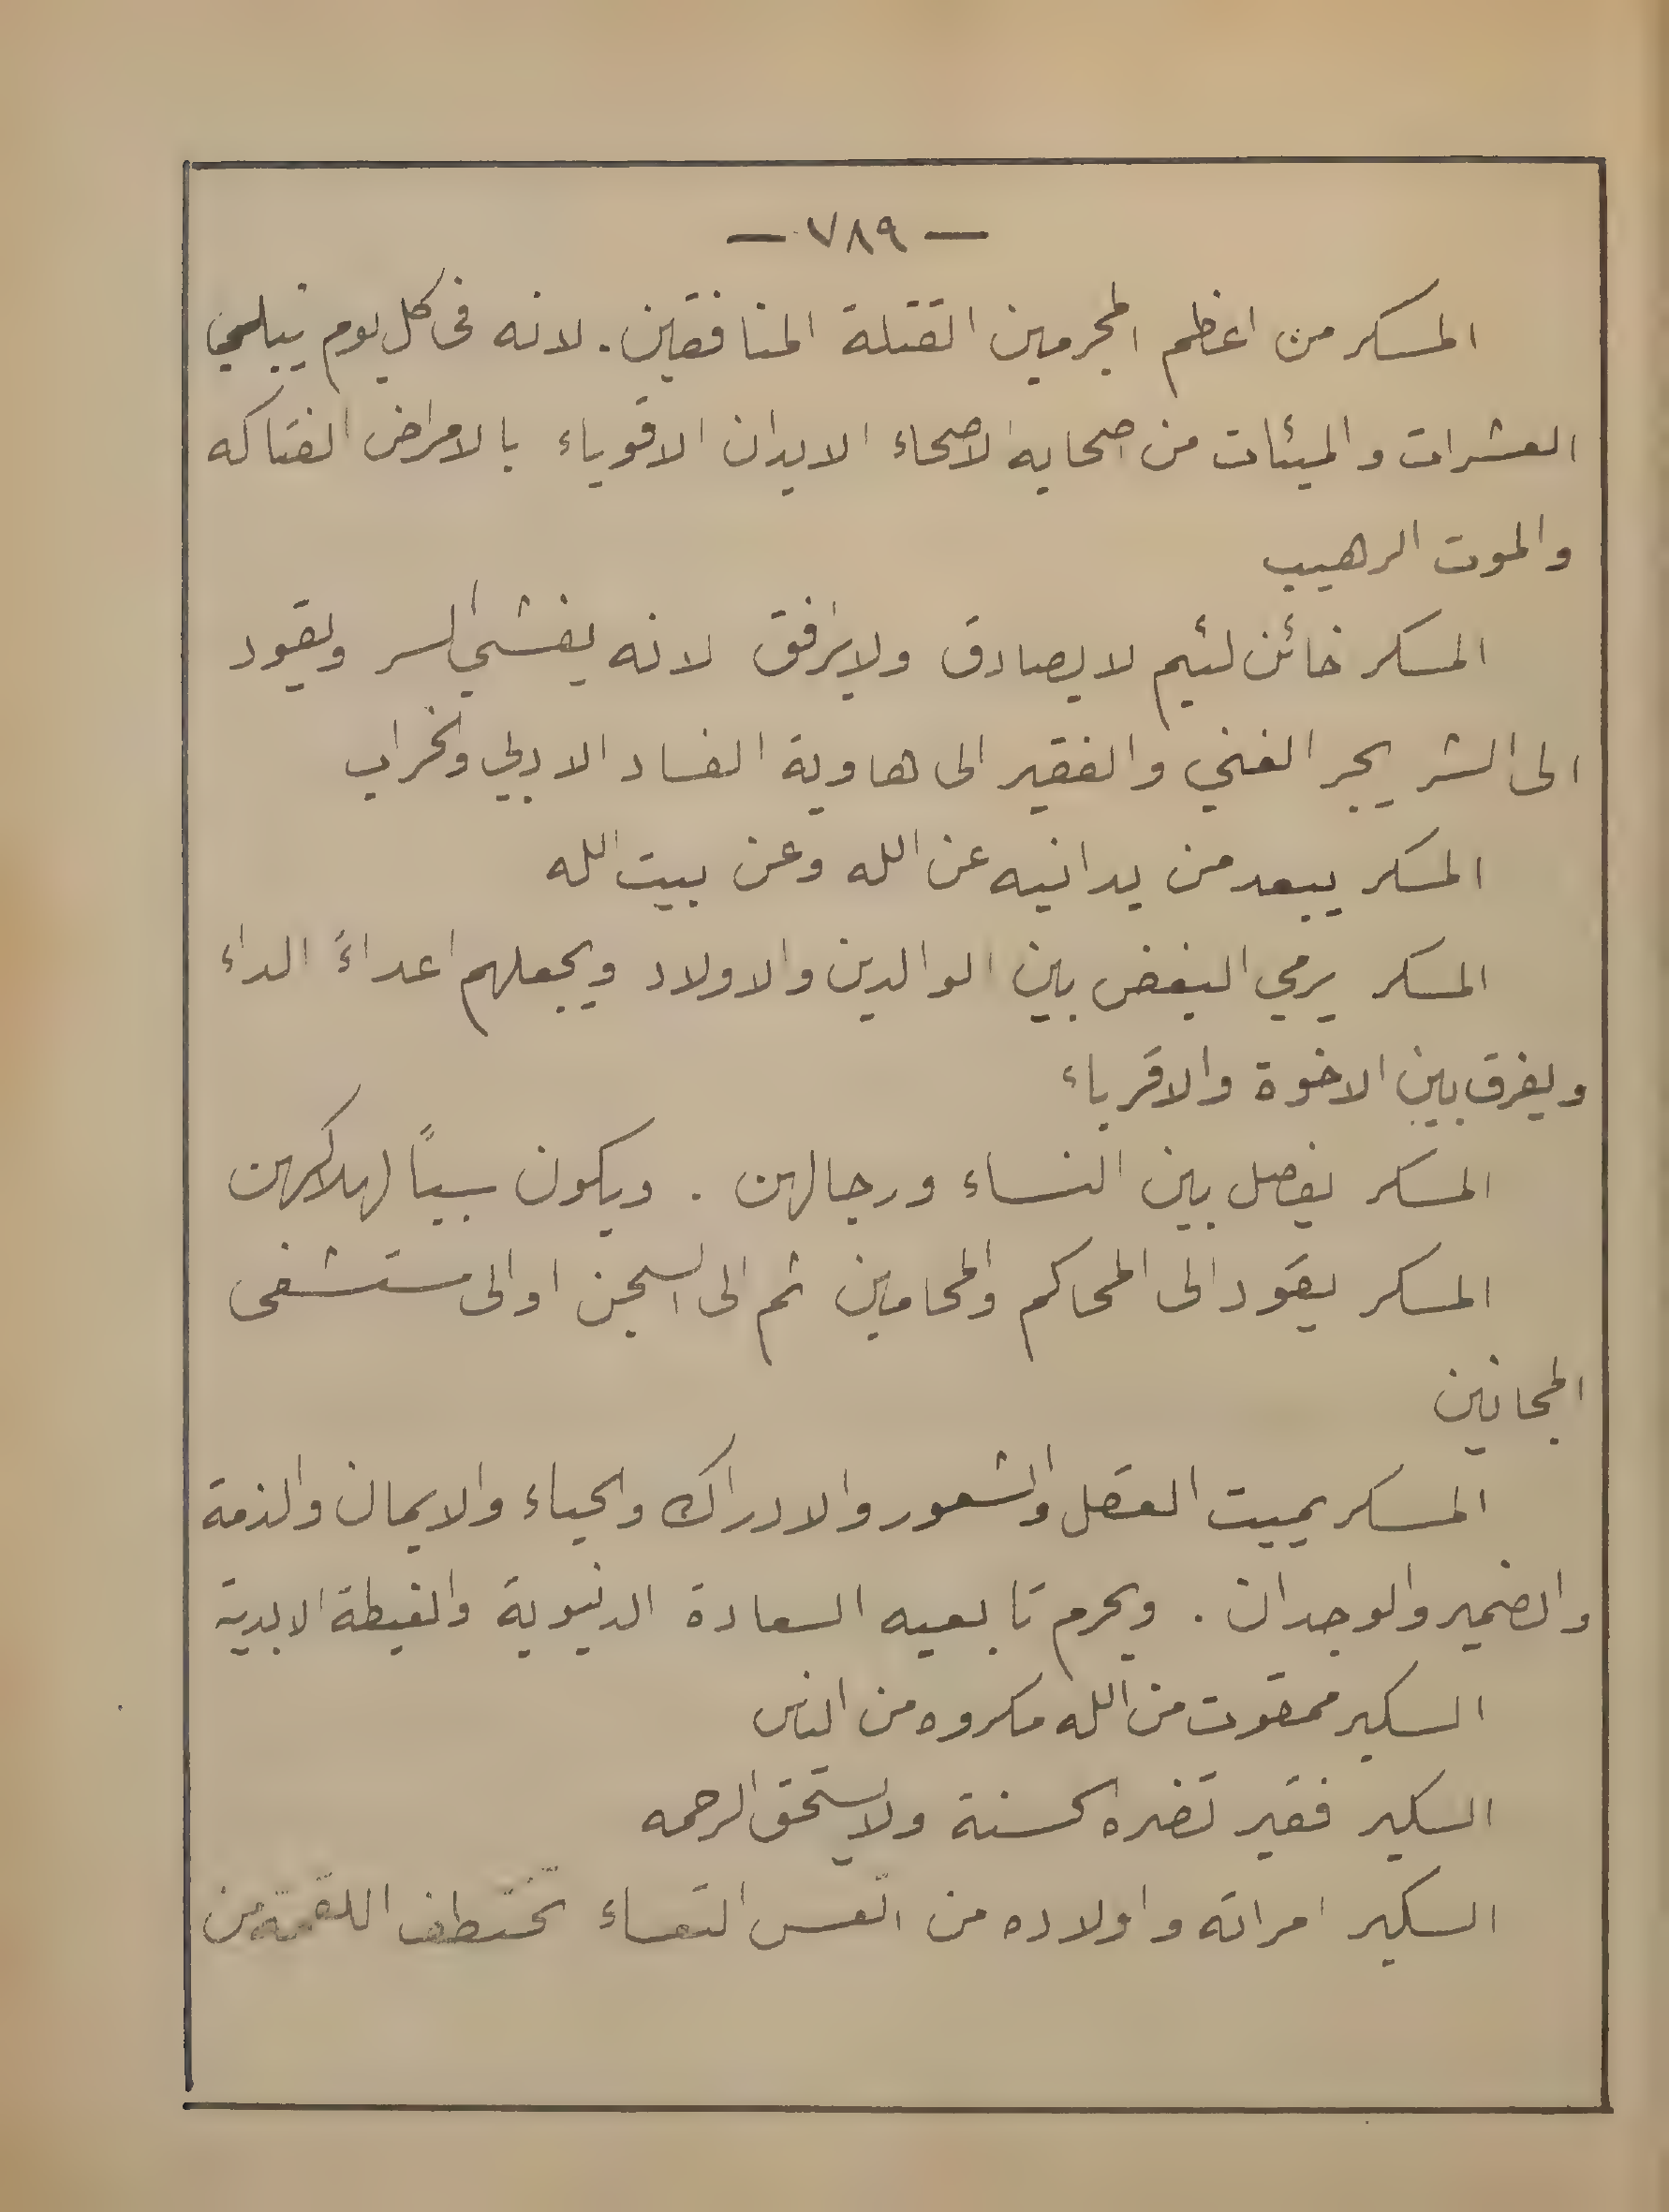 — ٧٨٩ —
المسكر من اعظم المجرمين القتلة المنافقين. لانه في كل يوم يبلي
العشرات والميئات من اصحابه الاصحاء الابدان الاقوياء بالامراض الفتاكه
والموت الرهيب
المسكر خائن لئيم لا يصادق ولا يرافق لانه يفشي السر ويقود
الى الشر يجر الغني والفقير الى هاوية الفساد الادبي والخراب
المسكر يبعد من يدانيه عن الله وعن بيت الله
المسكر يرمي البغض بين الوالدين والاولاد ويجعلهم اعداءً الداء
ويفرق بين الاخوة والاقرباء
المسكر يفصل بين النساء ورجالهن . ويكون سبباً لهلاكهن
المسكر يقود الى المحاكم والمحامين ثم الى السجن او الى مستشفى
المجانين
المسكر يميت العقل والشعور والادراك والحياء والايمان والذمة
والضمير والوجدان . ويحرم تابعيه السعادة الدنيوية والغبطة الابدية
السكير ممقوت من الله مكروه من الناس
السكير فقير تضره الحسنة ولا يستحق الرحمه
السكير امراته واولاده من اتعس التعساء تختطف اللقمة من